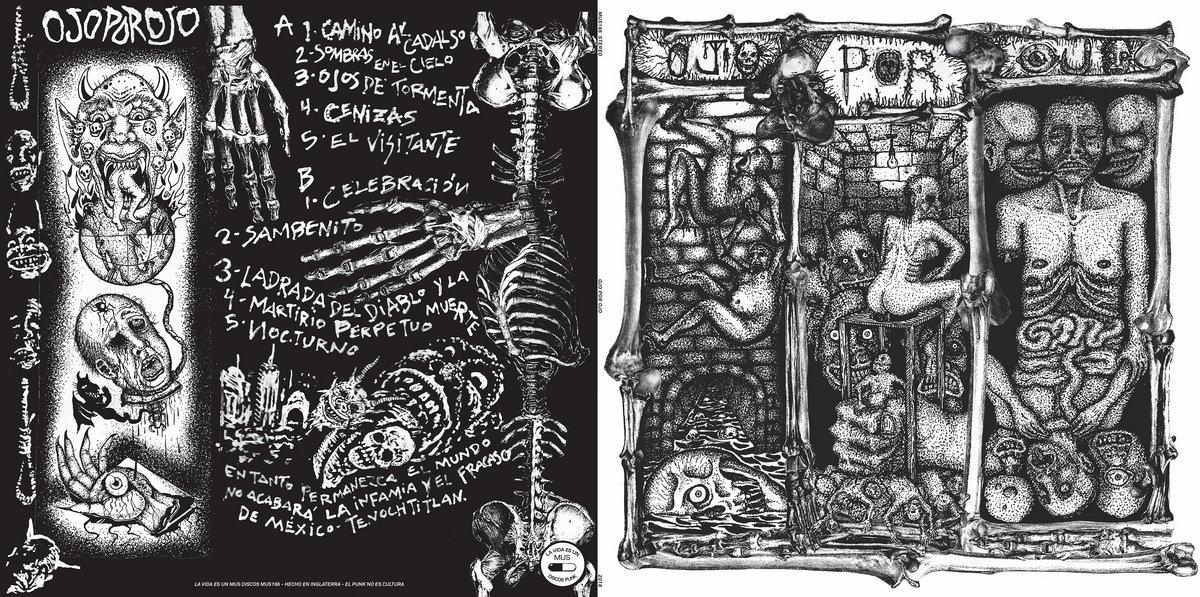 OJO POR OJO
A 1- CAMINO AL CADALSO
2- SOMBRAS EN EL CIELO
3- OJOS DE TORMENTA
4. CENIZAS
5- EL VISITANTE
B
1- CELEBRACIÓN
2- SAMBENITO
3- LADRADA DEL DIABLO Y LA MUERTE
4- MARTIRIO PERPETUO
5- NOCTURNO
EN TANTO PERMANEZCA EL MUNDO
NO ACABARÁ LA INFAMIA Y EL FRACASO
DE MÉXICO-TENOCHTITLAN.
LA VIDA ES UN
MUS
DISCOS PUNK
LA VIDA ES UN MUS DISCOS MUS166 - HECHO EN INGLATERRA - EL PUNK NO ES CULTURA
OJO POR OJO
2018
OJO POR OJO